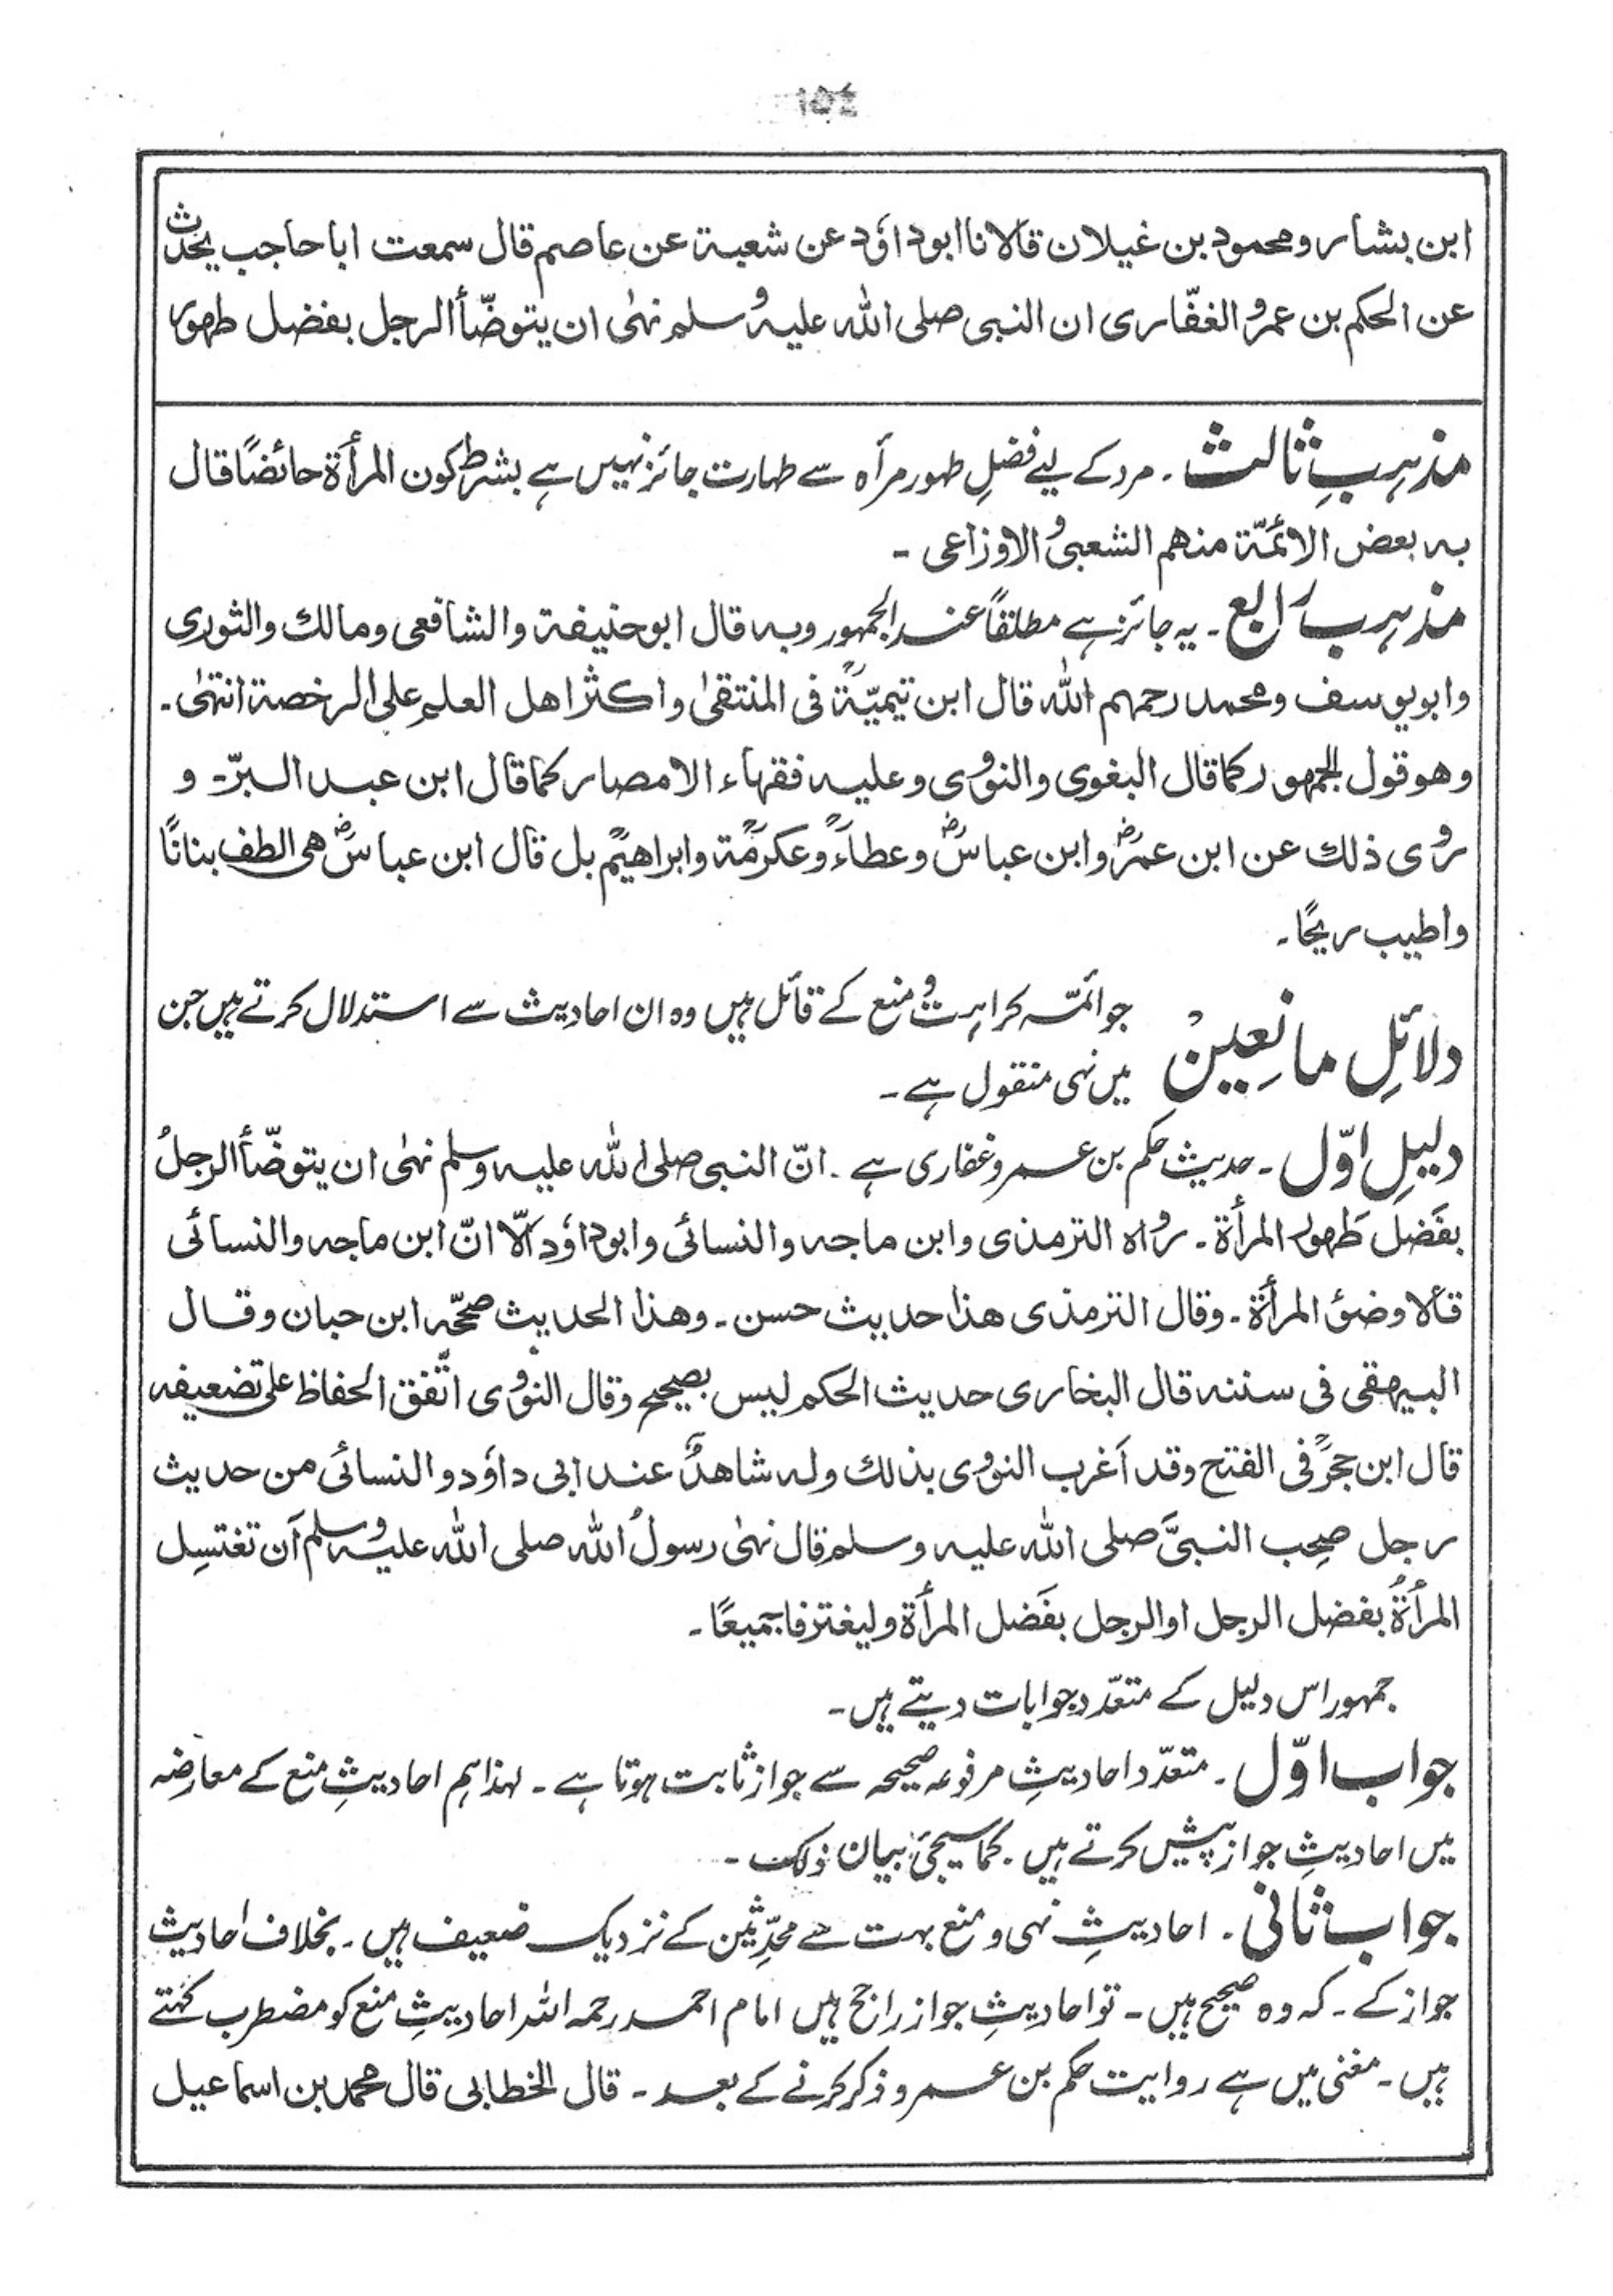 ابن بشار و محمود بن غیلان قالا نا ابو داؤد عن شعبة عن عاصم قال سمعت ابا حاجب یحدّث
عن الحکم بن عمرو الغفّاری ان النبی صلی اللہ علیہ وسلم نہٰی ان یتوضّأ الرجل بفضل طہور
مذہبِ ثالث ۔ مرد کے لیے فضلِ طہور مرأہ سے طہارت جائز نہیں ہے بشرط کون المرأة حائضًا قال
بہ بعض الائمّة منہم الشعبی والاوزاعی ۔
مذہب رابع ۔ یہ جائز ہے مطلقاً عند الجمہور وبہ قال ابوحنیفة والشافعی ومالک والثوری
وابویوسف ومحمد رحمہم اللہ قال ابن تیمیّةؒ فی المنتقیٰ واکثر اھل العلم علی الرخصة انتہٰی۔
وھو قول الجمہور کما قال البغوی والنووی وعلیہ فقہاء الامصار کما قال ابن عبد البرّ۔ و
روی ذلک عن ابن عمرؓ وابن عباسؓ وعطاءؒ وعکرمةؒ وابراھیمؒ بل قال ابن عباسؓ ھی الطف بنانًا
واطیب ریحًا۔
دلائلِ مانعین جو ائمّہ کراہت و منع کے قائل ہیں وہ ان احادیث سے استدلال کرتے ہیں جن
میں نہی منقول ہے۔
دلیلِ اوّل ۔ حدیث حکم بن عمرو غفاری ہے ۔ انّ النبی صلی اللہ علیہ وسلم نہٰی ان یتوضّأ الرجلُ
بفَضل طَہور المرأة ۔ رواہ الترمذی وابن ماجہ والنسائی وابوداؤد اِلّا انّ ابن ماجہ والنسائی
قالا وضوٴ المرأة ۔ وقال الترمذی ھذا حدیث حسن ۔ وھذا الحدیث صحّحہ ابن حبان وقال
البیہقی فی سننہ قال البخاری حدیث الحکم لیس بصحیح وقال النووی اتّفق الحفاظ علی تضعیفہ
قال ابن حجرؒ فی الفتح وقد اَغرب النووی بذلک ولہ شاھدٌ عند ابی داؤد والنسائی من حدیث
رجل صحِب النبیَّ صلی اللہ علیہ وسلم قال نہٰی رسولُ اللہ صلی اللہ علیہ وسلم اَن تغتسِل
المرأةُ بفضل الرجل اوالرجل بفَضل المرأة ولیغترفا جمیعًا ۔
جمہور اس دلیل کے متعدّد جوابات دیتے ہیں۔
جواب اوّل ۔ متعدّد احادیثِ مرفوعہ صحیحہ سے جواز ثابت ہوتا ہے ۔ لہذا ہم احادیثِ منع کے معارضہ
میں احادیثِ جواز پیش کرتے ہیں ۔ کما سیجیٔ بیان ذلک ۔
جواب ثانی ۔ احادیثِ نہی و منع بہت سے محدّثین کے نزدیک ضعیف ہیں ۔ بخلاف احادیث
جواز کے ۔ کہ وہ صحیح ہیں ۔ تو احادیثِ جواز راجح ہیں امام احمد رحمہ اللہ احادیثِ منع کو مضطرب کہتے
ہیں ۔ مغنی میں ہے روایت حکم بن عمرو ذکر کرنے کے بعد ۔ قال الخطابی قال محمد بن اسماعیل